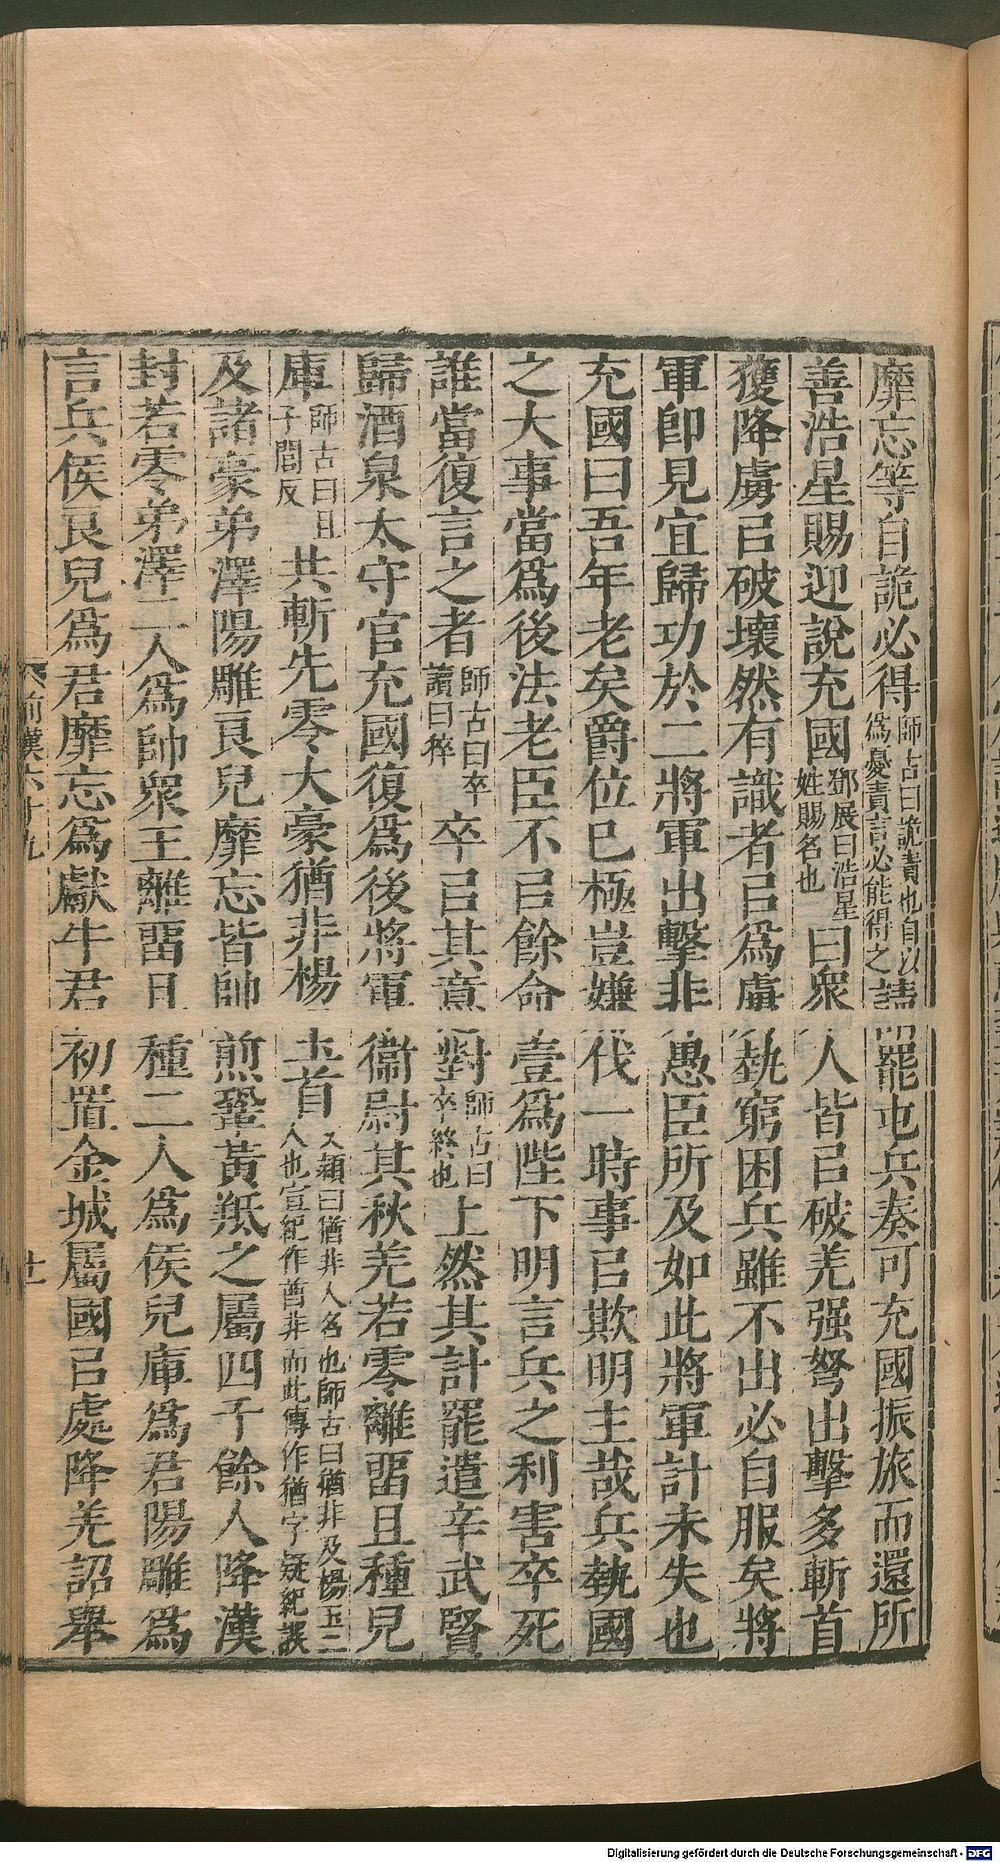 靡忘等自詭必得師古曰詭責也自以爲憂責言必能得之請罷屯兵奏可充國振旅而還所
善浩星賜迎說充國鄧展曰浩星姓賜名也曰衆人皆㠯破羌强弩出擊多斬首
獲降虜㠯破壞然有識者㠯爲虜埶窮困兵雖不出必自服矣將
軍卽見宜歸功於二將軍出擊非愚臣所及如此將軍計未失也
充國曰吾年老矣爵位已極豈嫌伐一時事㠯欺明主哉兵埶國
之大事當爲後法老臣不㠯餘命壹爲陛下明言兵之利害卒死
誰當復言之者師古曰卒讀曰猝卒㠯其意對師古曰卒終也上然其計罷遣辛武賢
歸酒泉太守官充國復爲後將軍衞尉其秋羌若零離畱且種兒
庫師古曰且子閭反共斬先零大豪猶非楊玉首文穎曰猶非人名也師古曰猶非及楊玉二人也宣紀作酋非而此傳作猶字疑紀誤
及諸豪弟澤陽雕良兒靡忘皆帥煎鞏黃羝之屬四千餘人降漢
封若零弟澤二人爲帥衆王離畱且種二人爲侯兒庫爲君陽雕爲
言兵侯良兒爲君靡忘爲獻牛君初置金城屬國㠯處降羌詔舉
前漢六十九
十一
Digitalisierung gefördert durch die Deutsche Forschungsgemeinschaft - DFG